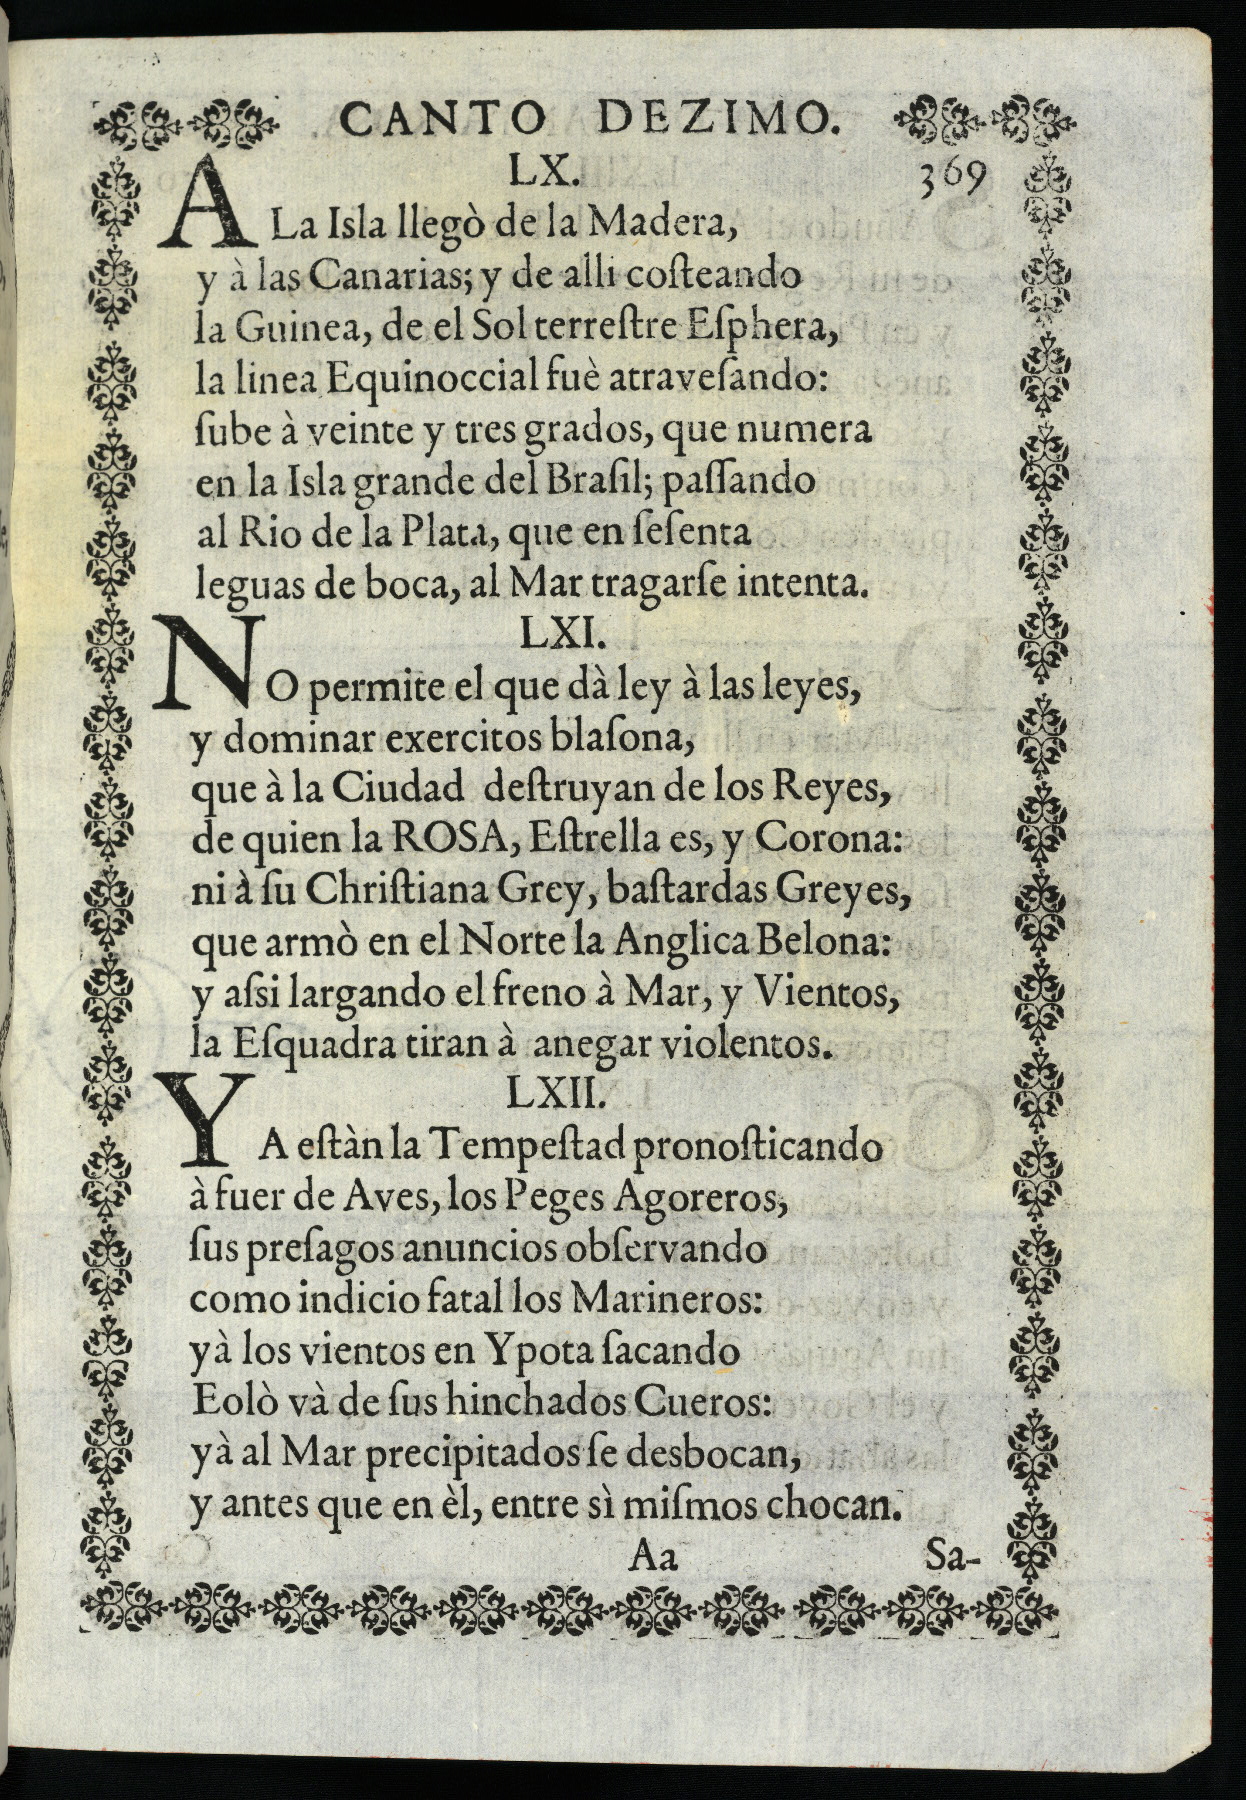 CANTO DEZIMO.
LX. 369
A La Isla llegò de la Madera,
y à las Canarias; y de alli coſteando
la Guinea, de el Sol terreſtre Eſphera,
la linea Equinoccial fuè atraveſando:
ſube à veinte y tres grados, que numera
en la Isla grande del Braſil; paſſando
al Rio de la Plata, que en ſeſenta
leguas de boca, al Mar tragarſe intenta.
LXI.
NO permite el que dà ley à las leyes,
y dominar exercitos blaſona,
que à la Ciudad deſtruyan de los Reyes,
de quien la ROSA, Eſtrella es, y Corona:
ni à ſu Chriſtiana Grey, baſtardas Greyes,
que armò en el Norte la Anglica Belona:
y aſsi largando el freno à Mar, y Vientos,
la Eſquadra tiran à anegar violentos.
LXII.
YA eſtàn la Tempeſtad pronoſticando
à fuer de Aves, los Peges Agoreros,
ſus preſagos anuncios obſervando
como indicio fatal los Marineros:
yà los vientos en Ypota ſacando
Eolò và de ſus hinchados Cueros:
yà al Mar precipitados ſe desbocan,
y antes que en èl, entre sì miſmos chocan.
Aa Sa-